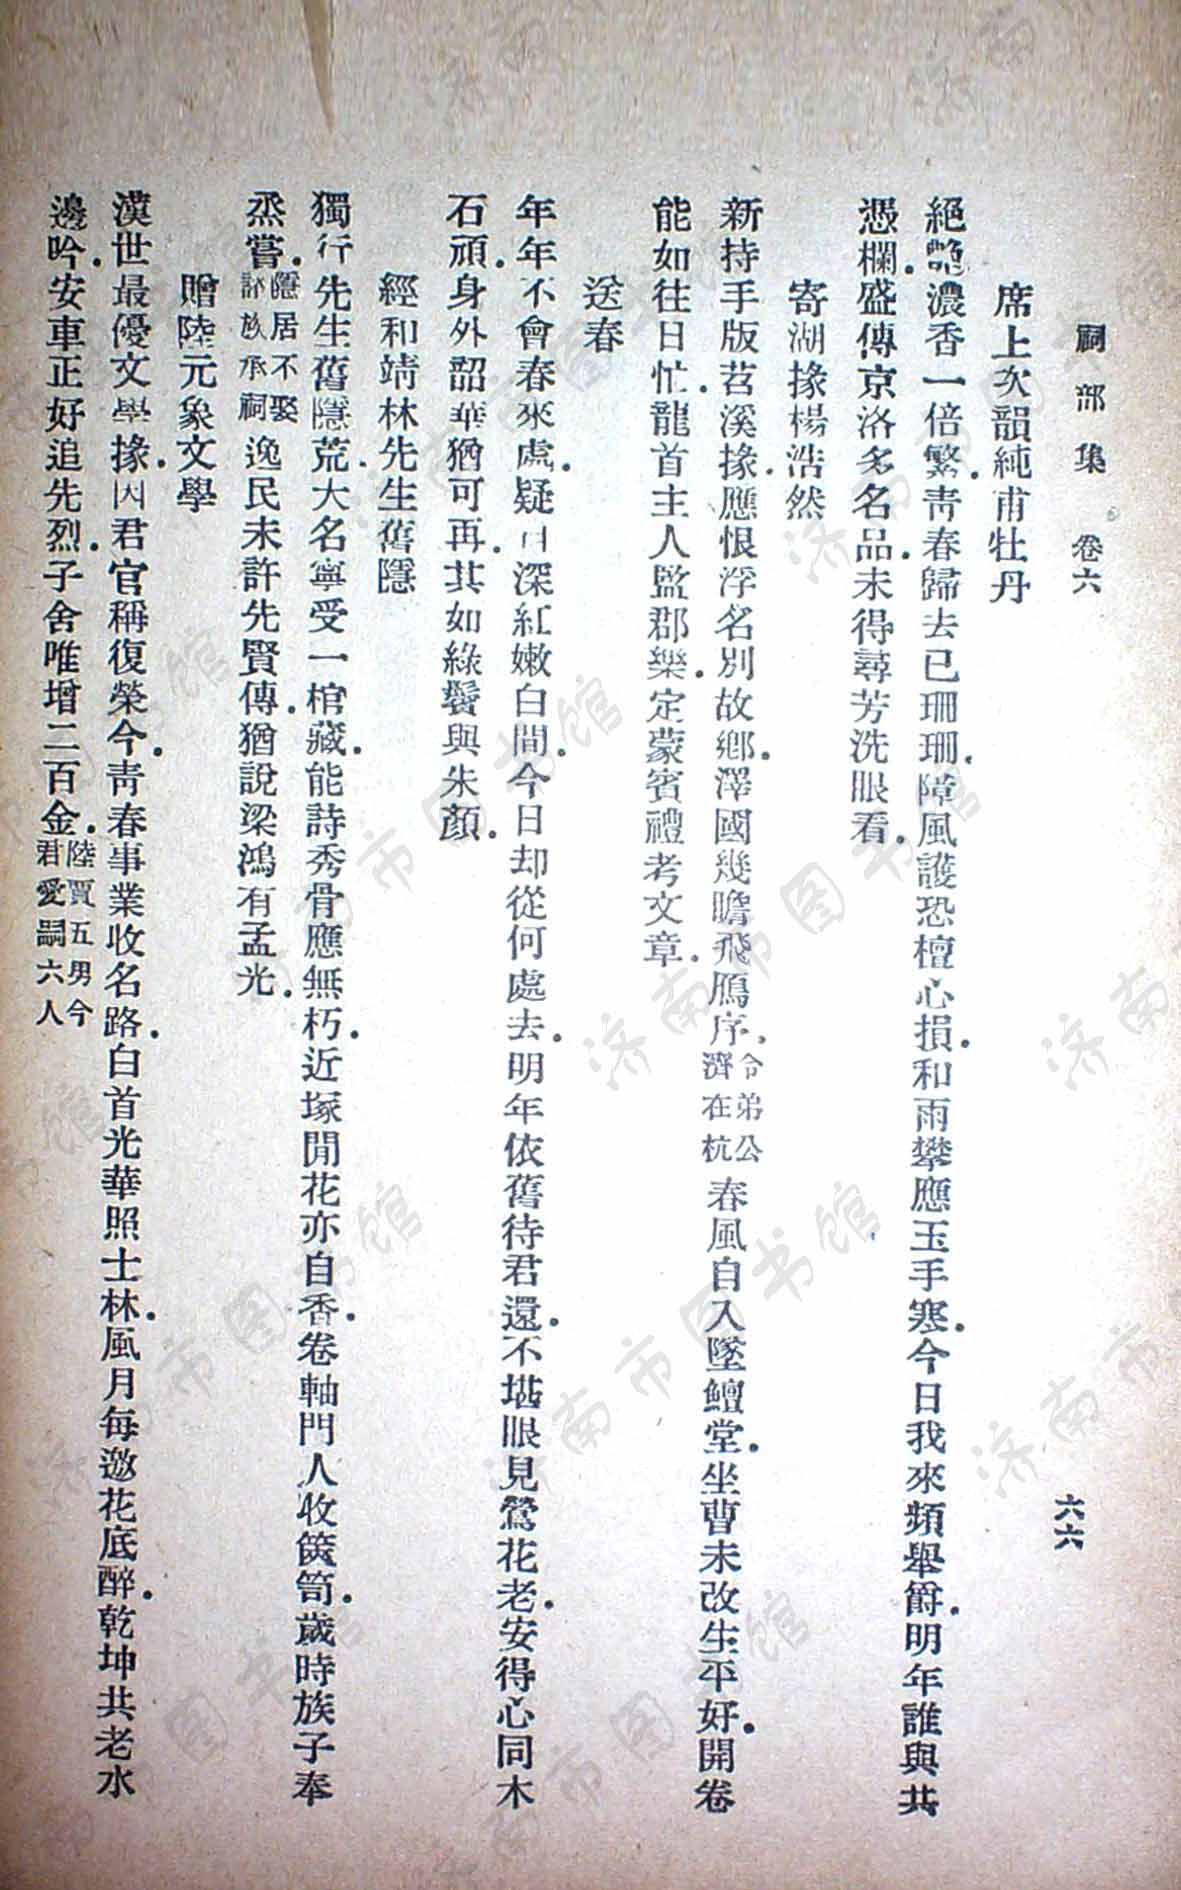 祠部集　卷六　六六
席上次韻純甫牡丹
絕艷濃香一倍繁.靑春歸去已珊珊.障風護恐檀心損.和雨攀應玉手寒.今日我來頻舉爵.明年誰與共
憑欄.盛傳京洛多名品.未得尋芳洗眼看.
寄湖掾楊浩然
新持手版苕溪掾.應恨浮名別故鄕.澤國幾瞻飛鴈序.令弟公濟在杭春風自入墜鱣堂.坐曹未改生平好.開卷
能如往日忙.龍首主人監郡樂.定蒙賓禮考文章.
送春
年年不會春來處.疑日深紅嫩白間.今日却從何處去.明年依舊待君還.不堪眼見鶯花老.安得心同木
石頑.身外韶華猶可再.其如綠鬢與朱顏.
經和靖林先生舊隱
獨行先生舊隱荒.大名寧受一棺藏.能詩秀骨應無朽.近塚閒花亦自香.卷軸門人收篋笥.歲時族子奉
烝嘗.隱居不娶諸族承祠逸民未許先賢傳.猶說梁鴻有孟光.
贈陸元象文學
漢世最優文學掾.因君官稱復榮今.靑春事業收名路.白首光華照士林.風月每邀花底醉.乾坤共老水
邊吟.安車正好追先烈.子舍唯增二百金.陸賈五男今君愛嗣六人